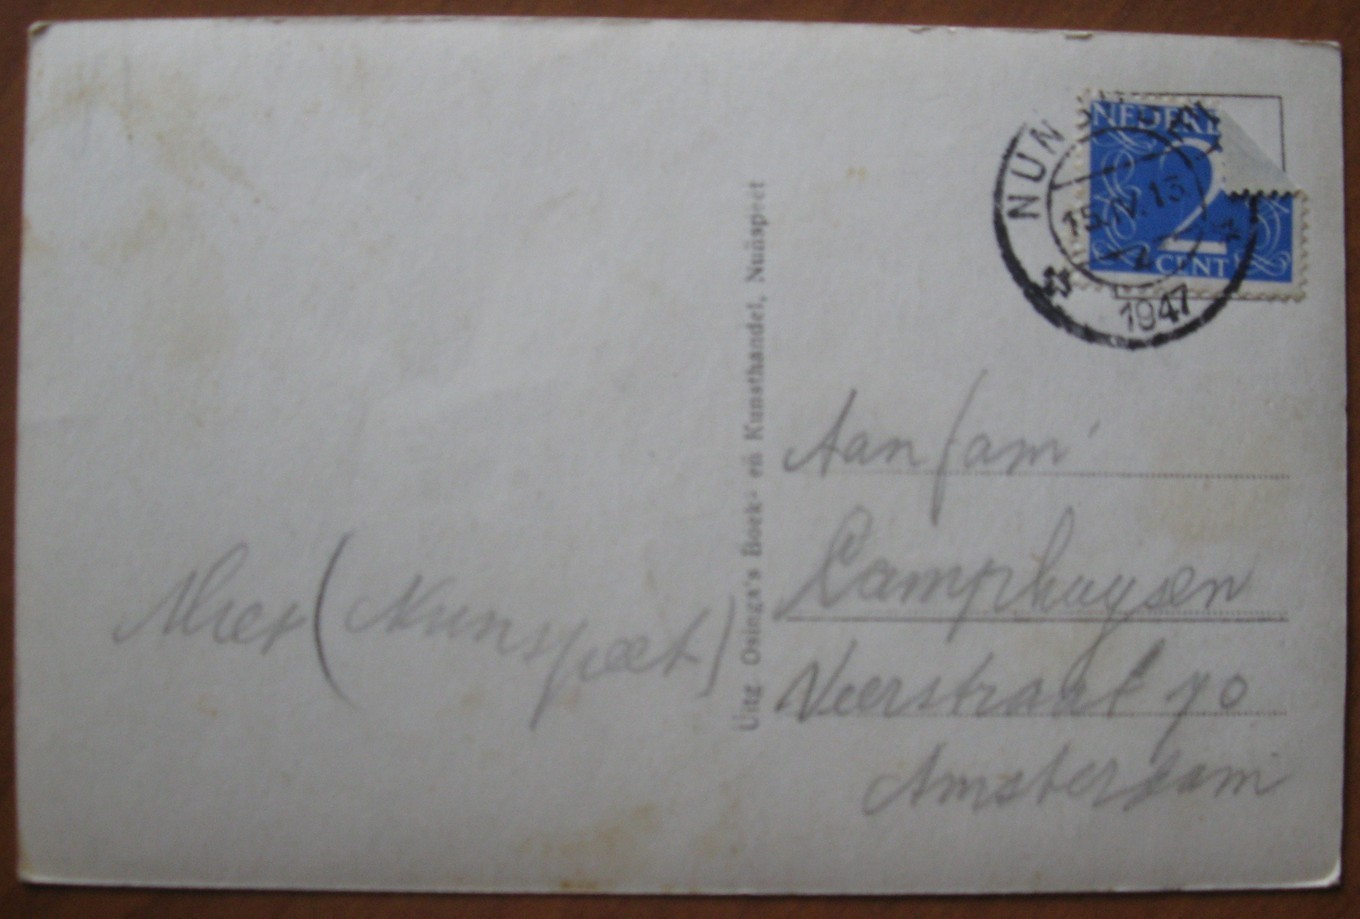 NEDERL
2
CENT
NUNSPEET
15.IV.13
1947
Uitg. Osinga's Boek- en Kunsthandel, Nunspeet
Aan fam'
Camphuysen
Veerstraat 70
Amsterdam
Miex (Nunspeet)